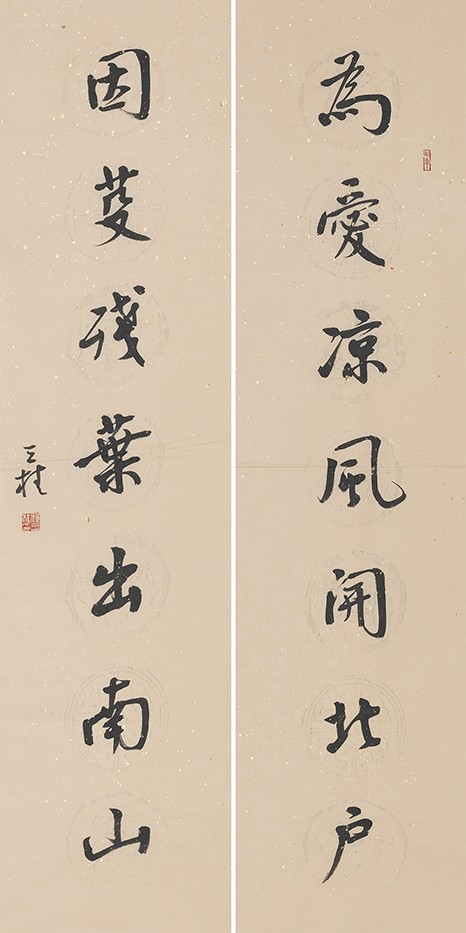 為愛凉風開北户
因芟殘葉出南山